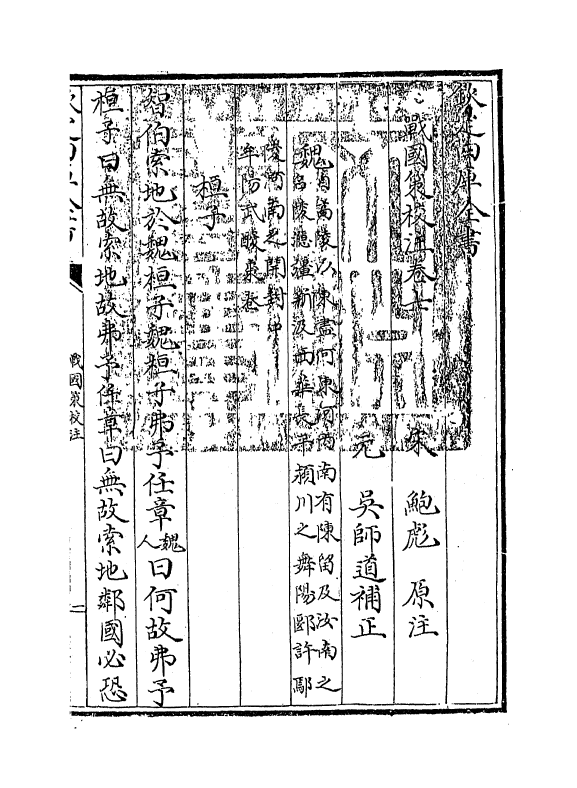 欽定四庫全書
戰國策校注卷七
宋 鮑彪 原注
元 吳師道補正
魏自高陵以東盡河東河內南有陳留及汝南之
召陵㶏彊新汲西華長平潁川之舞陽郾許鄢
陵河南之開封中
牟陽武酸棗卷
桓子
智伯索地於魏桓子魏桓子弗予任章魏人曰何故弗予
桓子曰無故索地故弗予任章曰無故索地鄰國必恐
欽定四庫全書
戰國策校注
一